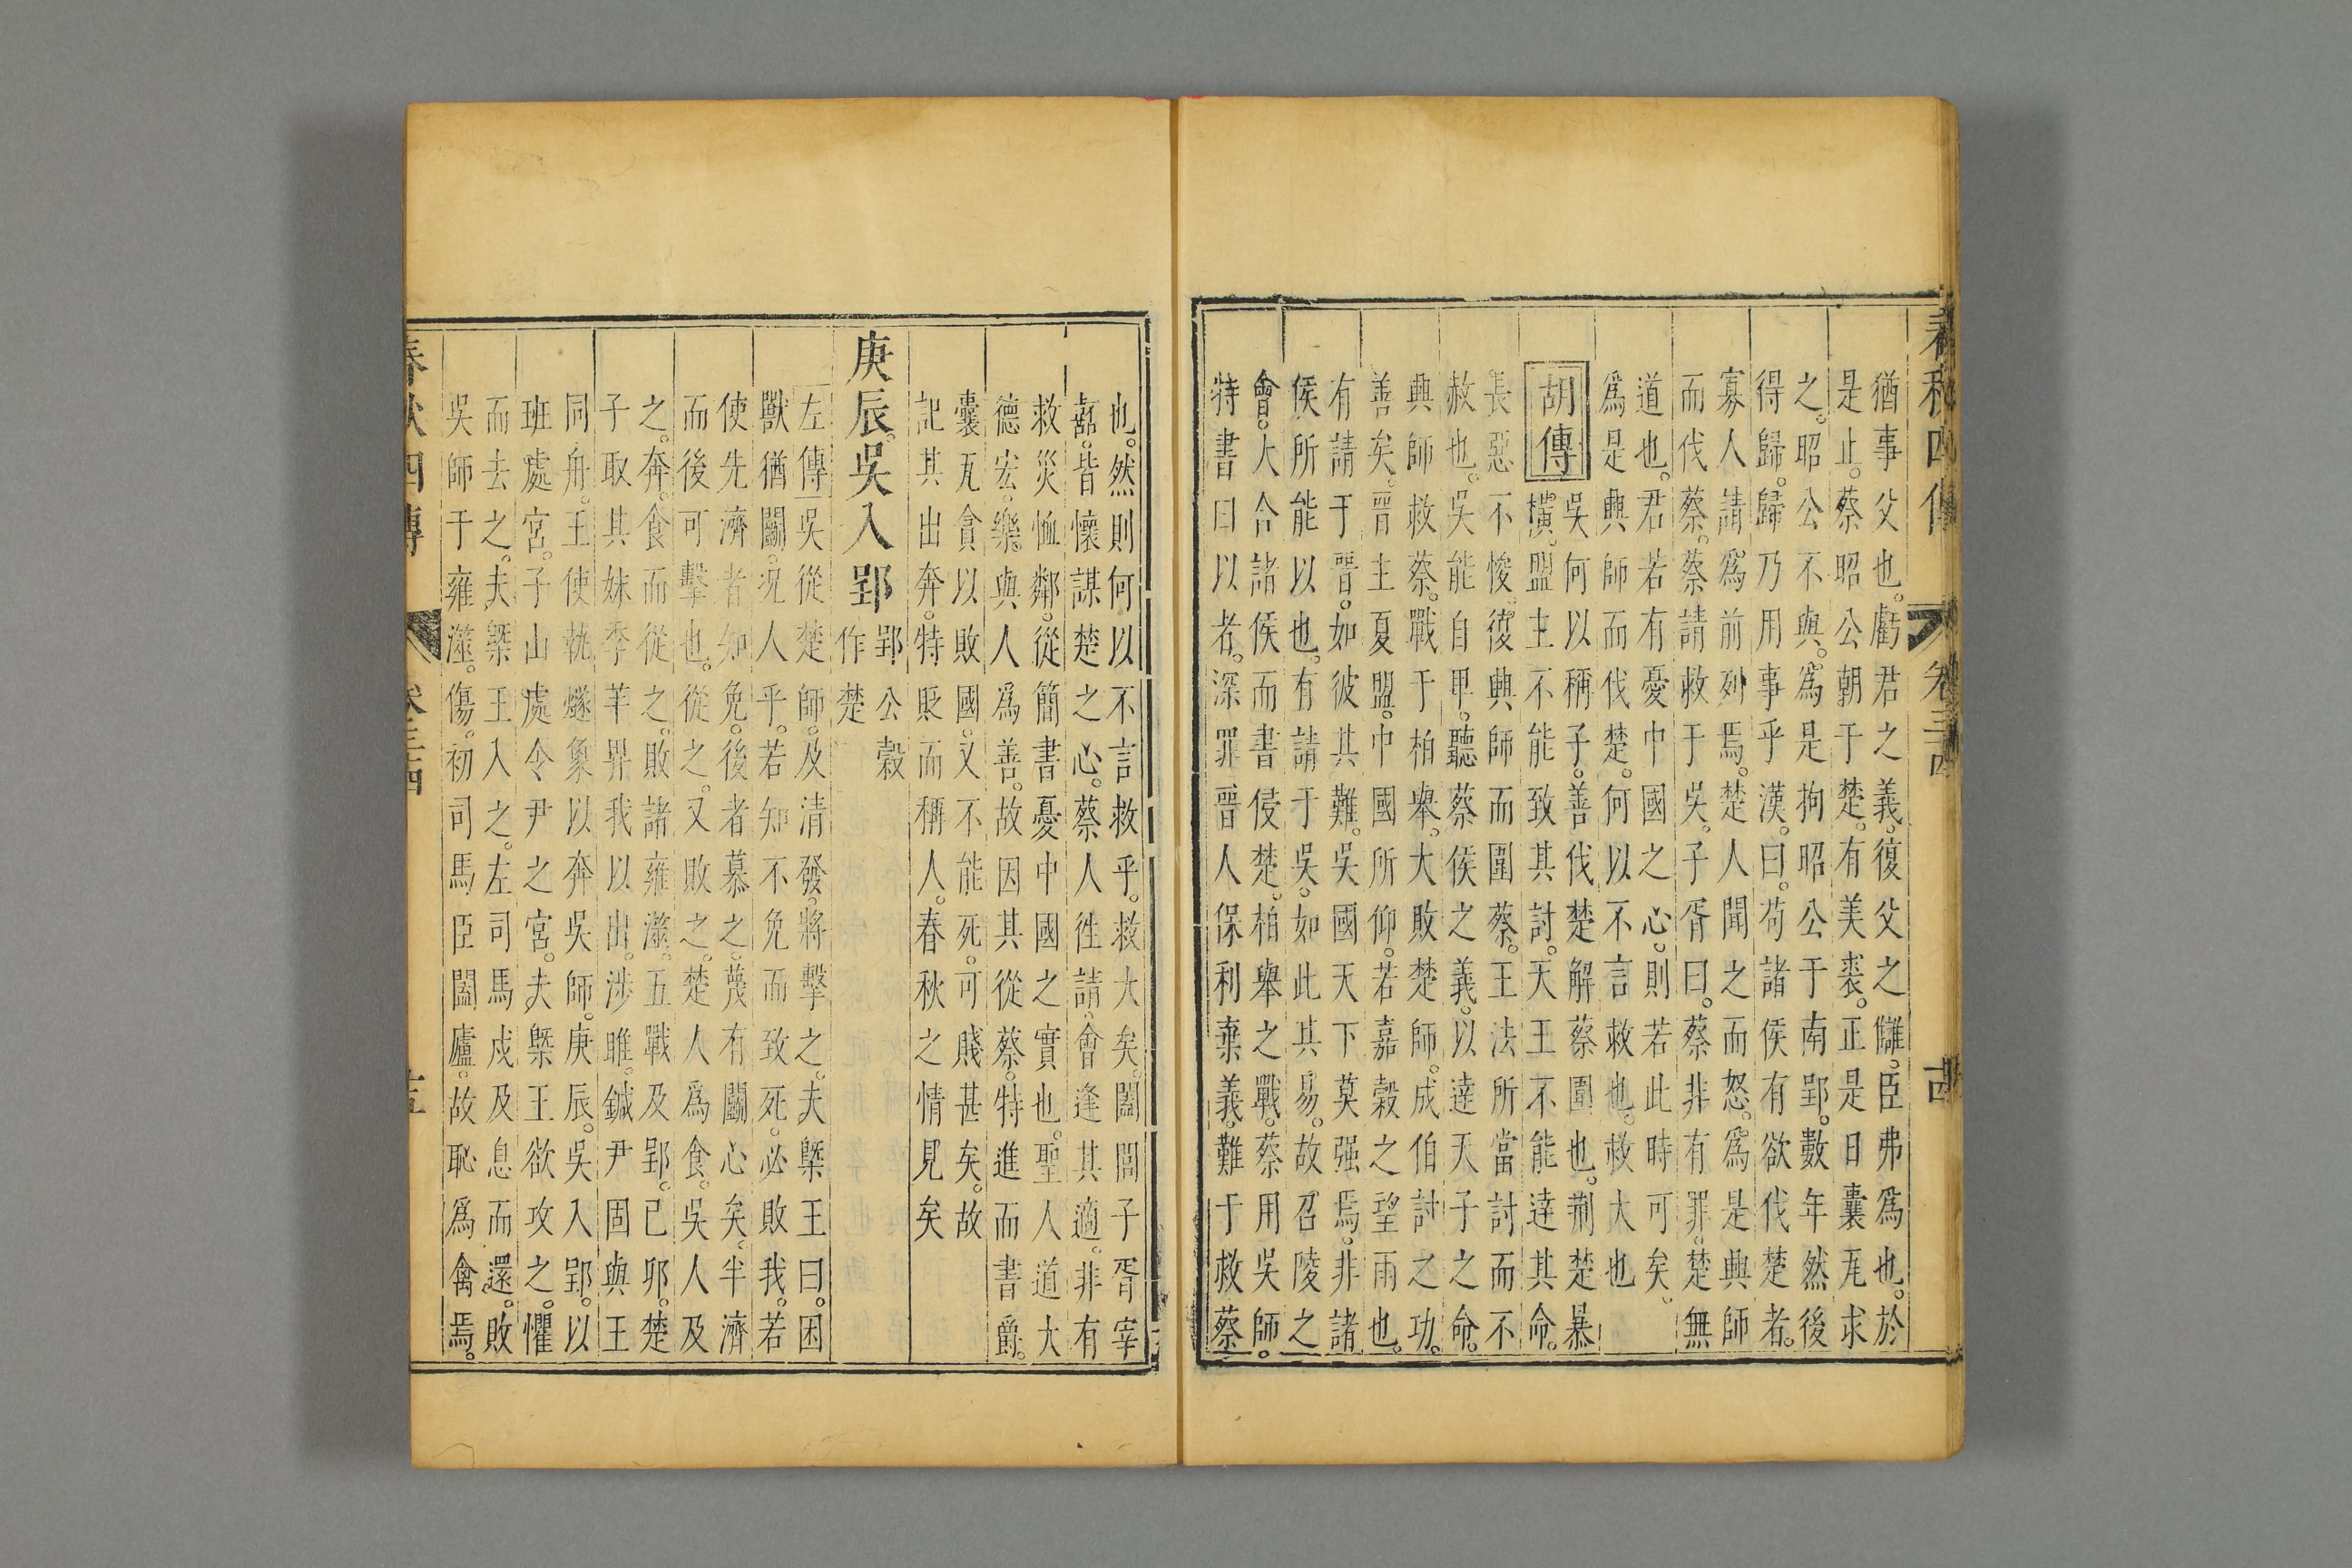 春秋四傳 卷三十四 十四
猶事父也。虧君之義。復父之讎。臣弗爲也。於
是止。蔡昭公朝于楚。有美裘。正是日囊瓦求
之。昭公不與。爲是拘昭公于南郢。數年然後
得歸。歸乃用事乎漢。曰。苟諸侯有欲伐楚者。
寡人請爲前列焉。楚人聞之而怒。爲是興師
而伐蔡。蔡請救于吳。子胥曰。蔡非有罪。楚無
道也。君若有憂中國之心。則若此時可矣。
爲是興師而伐楚。何以不言救也。救大也
胡傳 吳何以稱子。善伐楚解蔡圍也。荆楚暴
橫。盟主不能致其討。天王不能達其命。
長惡不悛。復興師而圍蔡。王法所當討而不
赦也。吳能自卑。聽蔡侯之義。以達天子之命。
興師救蔡。戰于柏舉。大敗楚師。成伯討之功。
善矣。晉主夏盟。中國所仰。若嘉穀之望雨也。
有請于晉。如彼其難。吳國天下莫强焉。非諸
侯所能以也。有請于吳。如此其易。故召陵之
會。大合諸侯而書侵楚。柏舉之戰。蔡用吳師。
特書曰以者。深罪晉人保利棄義。難于救蔡
也。然則何以不言救乎。救大矣。闔閭子胥宰
嚭。皆懷謀楚之心。蔡人徃請。會逢其適。非有
救災恤鄰。從簡書憂中國之實也。聖人道大
德宏。樂與人爲善。故因其從蔡。特進而書爵。
囊瓦貪以敗國。又不能死。可賤甚矣。故
記其出奔。特貶而稱人。春秋之情見矣
庚辰。吳入郢 郢公穀
作楚
左傳 吳從楚師。及清發。將擊之。夫槩王曰。困
獸猶鬭。况人乎。若知不免而致死。必敗我。若
使先濟者知免。後者慕之。蔑有鬭心矣。半濟
而後可擊也。從之。又敗之。楚人爲食。吳人及
之。奔。食而從之。敗諸雍澨。五戰及郢。已卯。楚
子取其妹季羋畀我以出。涉睢。鍼尹固與王
同舟。王使執燧象以奔吳師。庚辰。吳入郢。以
班處宮。子山處令尹之宮。夫槩王欲攻之。懼
而去之。夫槩王入之。左司馬戍及息而還。敗
吳師于雍澨。傷。初司馬臣闔廬。故恥爲禽焉。
春秋四傳 卷三十四 十五